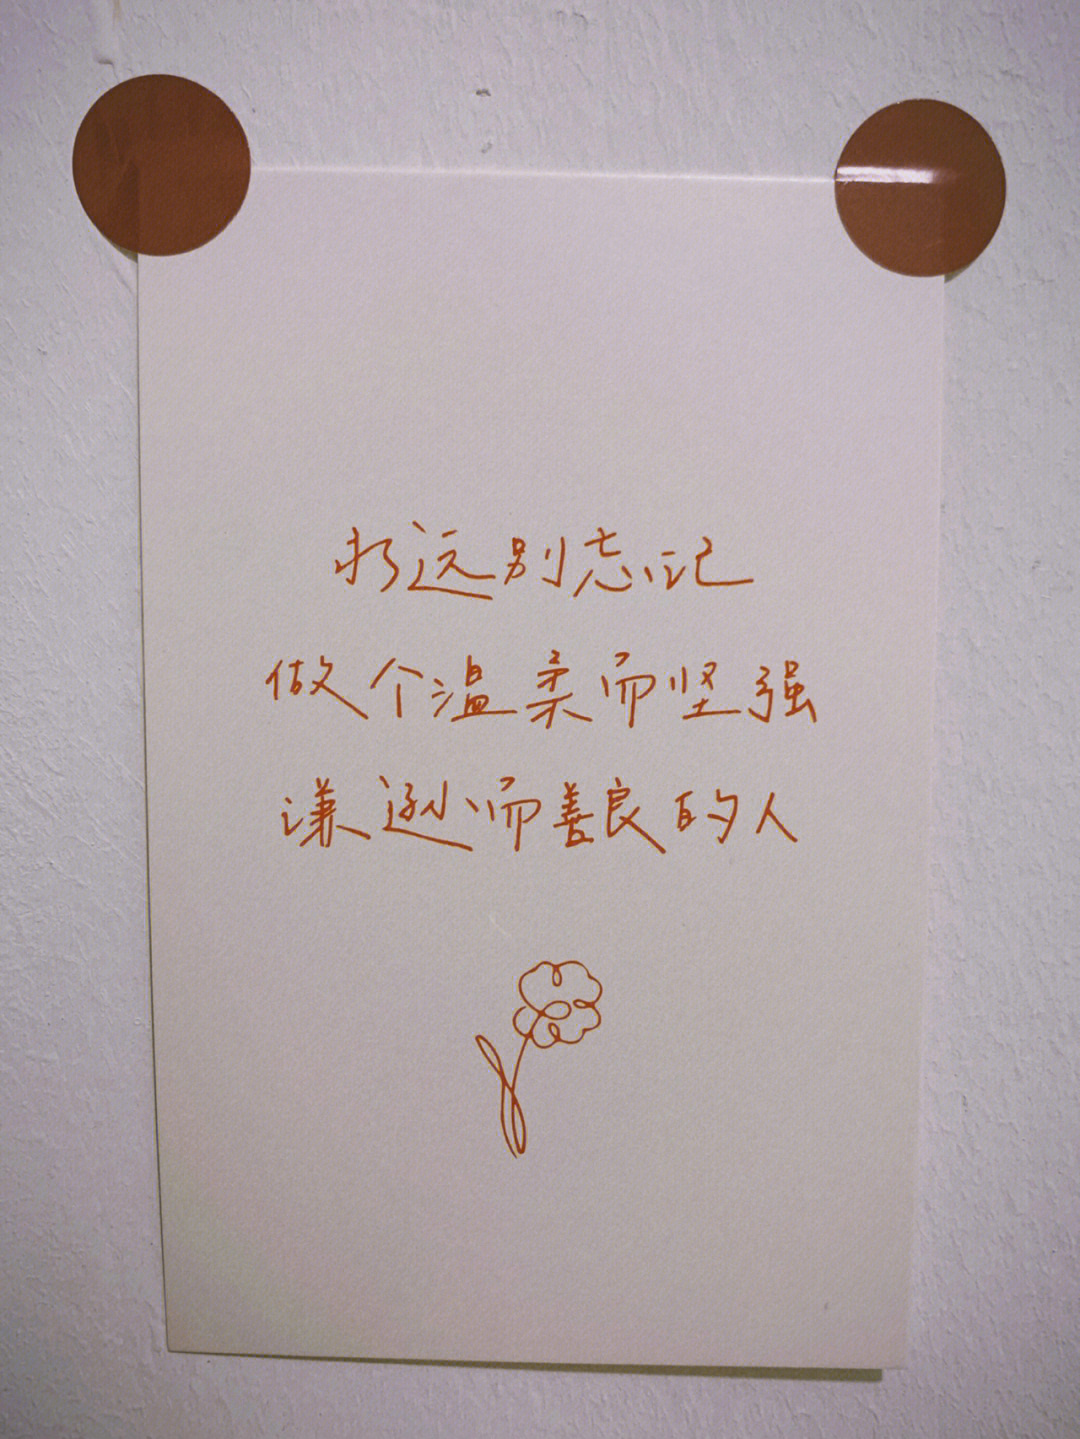 永远别忘记
做个温柔而坚强
谦逊而善良的人